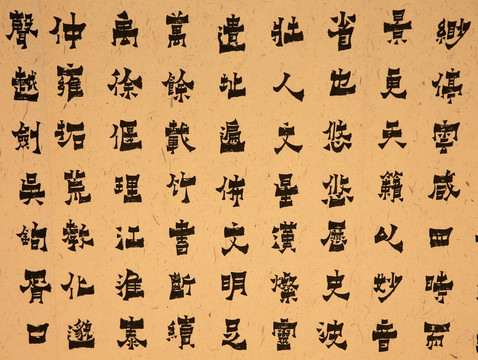 緲停雲感四時而
景更天籟以妙音
省也悠悠歷史波
壯人文星漢燦靈
遺址遍佈文明足
萬餘載竹書斷續
禹徐偃理江淮泰
仲雍拓荒教化邈
聲越劍吳鉤胥口